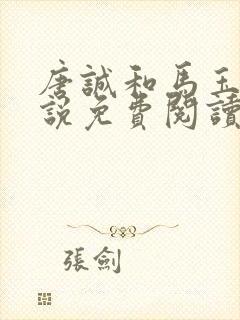 唐誠和馬玉
說免費閱讀
張劍